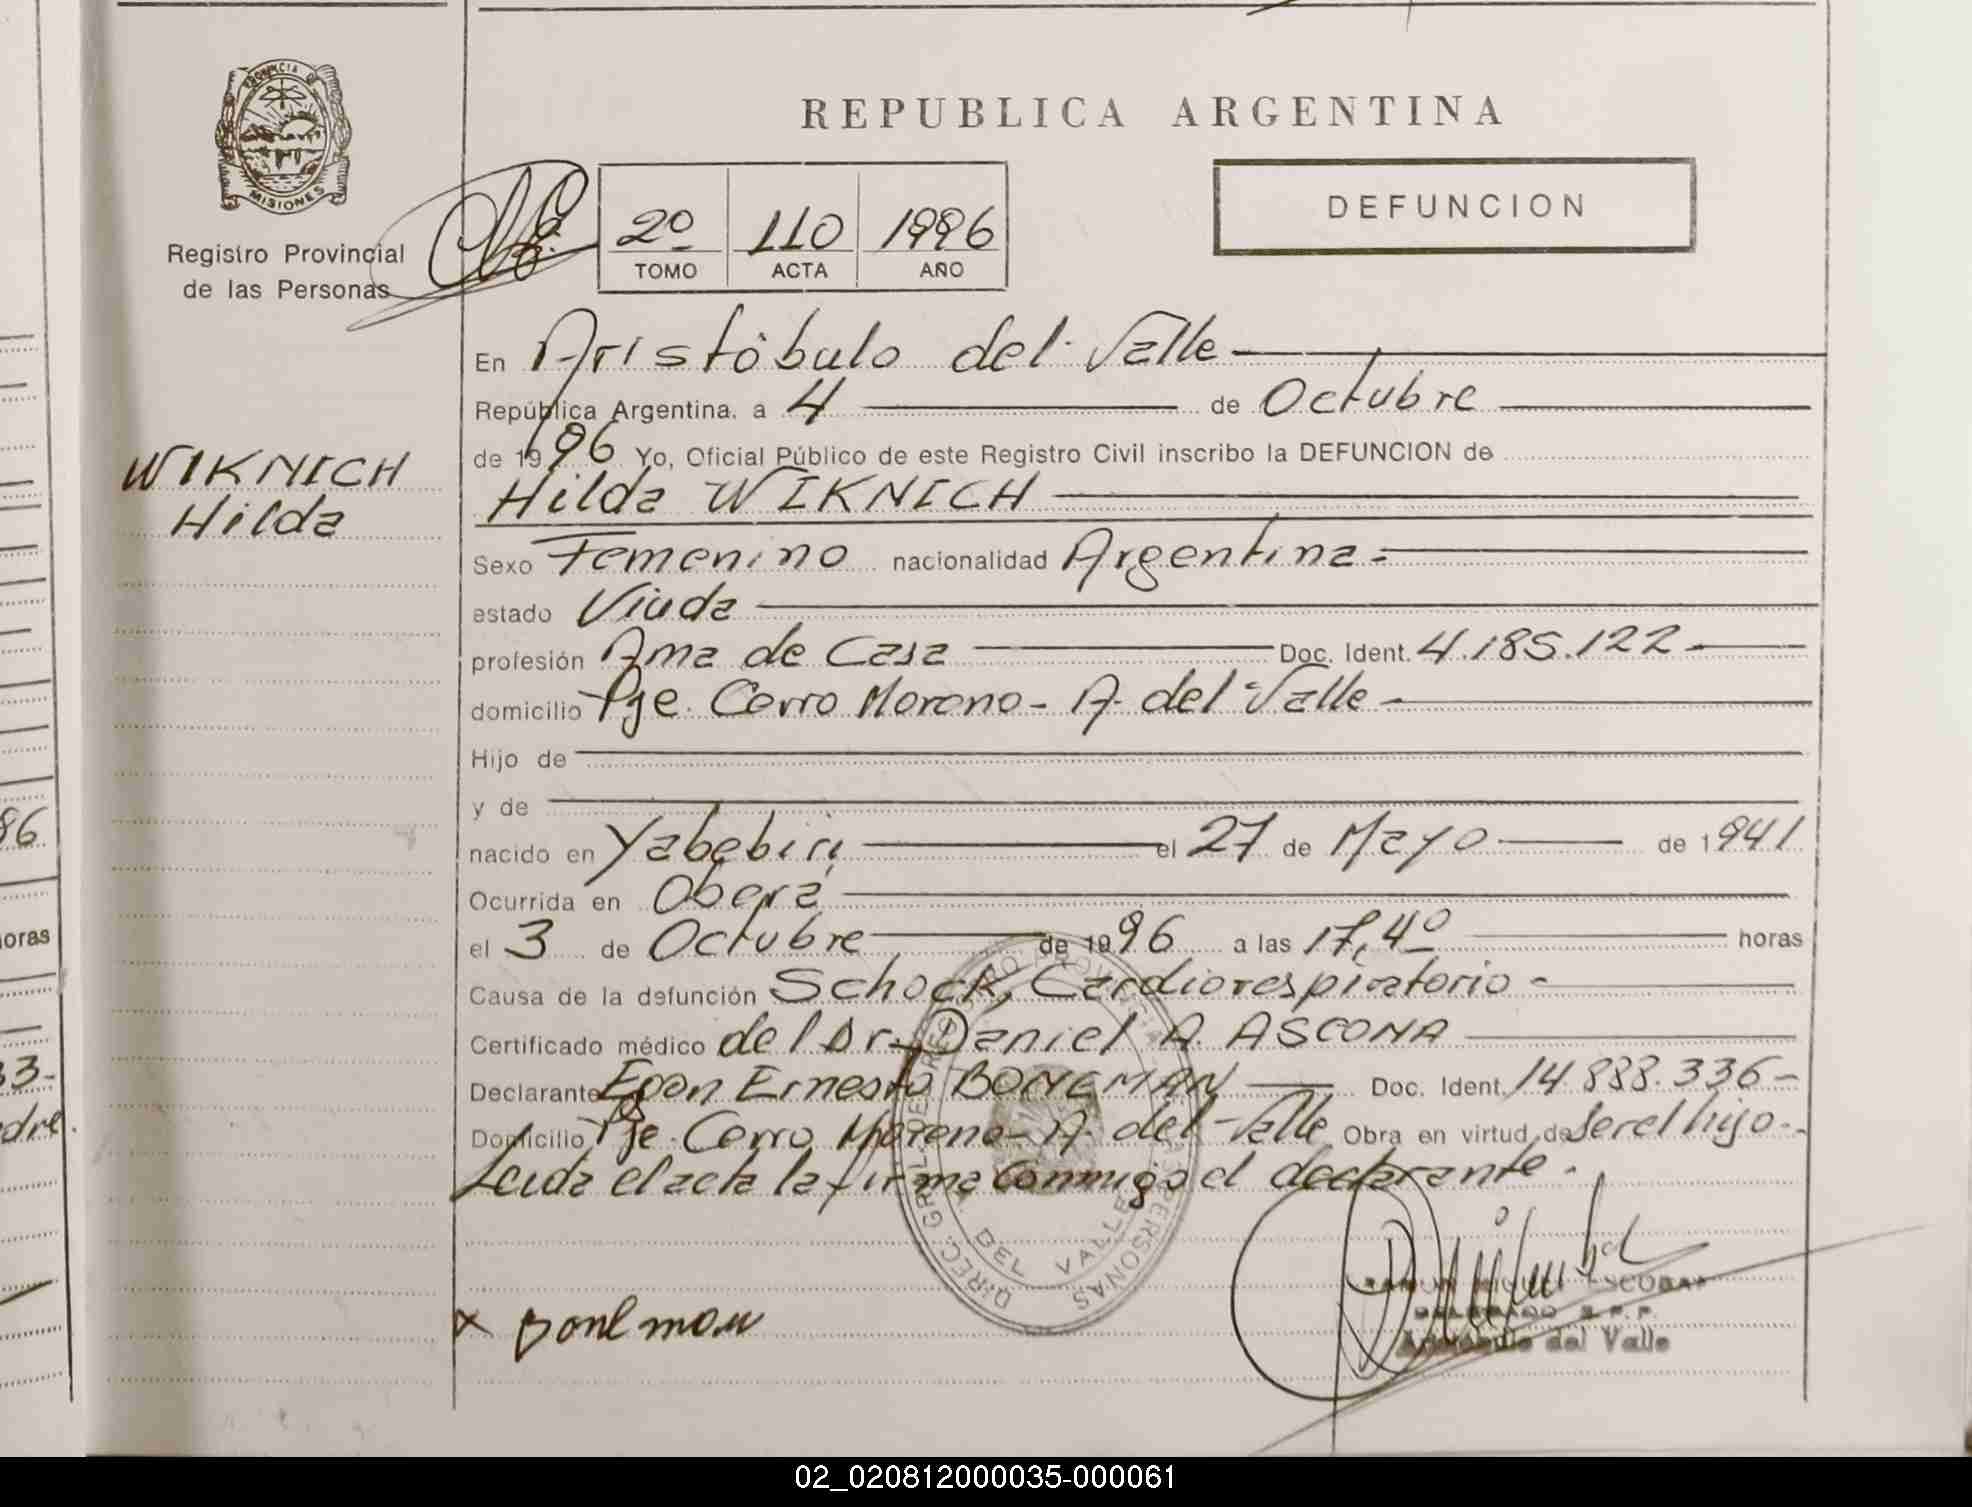 REPUBLICA ARGENTINA
PROVINCIA DE
MISIONES
Registro Provincial
de las Personas
2º 110 1996
TOMO ACTA AÑO
DEFUNCION
WIKNICH
Hilda
En Aristóbulo del Valle
República Argentina, a 4 de Octubre
de 1996 Yo, Oficial Público de este Registro Civil inscribo la DEFUNCION de
Hilda WIKNICH
Sexo Femenino nacionalidad Argentina
estado Viuda
profesión Ama de Casa Doc. Ident. 4.185.122
domicilio Pje. Cerro Moreno - A. del Valle
Hijo de
y de
nacido en Yabebiri el 27 de Mayo de 1941
Ocurrida en Oberá
el 3 de Octubre de 1996 a las 17,40 horas
Causa de la defunción Schock, Cardiorespiratorio
Certificado médico del Dr. Daniel A. ASCONA
Declarante Egon Ernesto BONEMAN Doc. Ident. 14.888.336
Domicilio Pje. Cerro Moreno - A. del Valle Obra en virtud de ser el hijo.
Leida el acta la firma conmigo el declarante.
DEL VALLE
x Bonemann
ESCOBAR
Aristóbulo del Valle
86
horas
33-
adre.
02_020812000035-000061